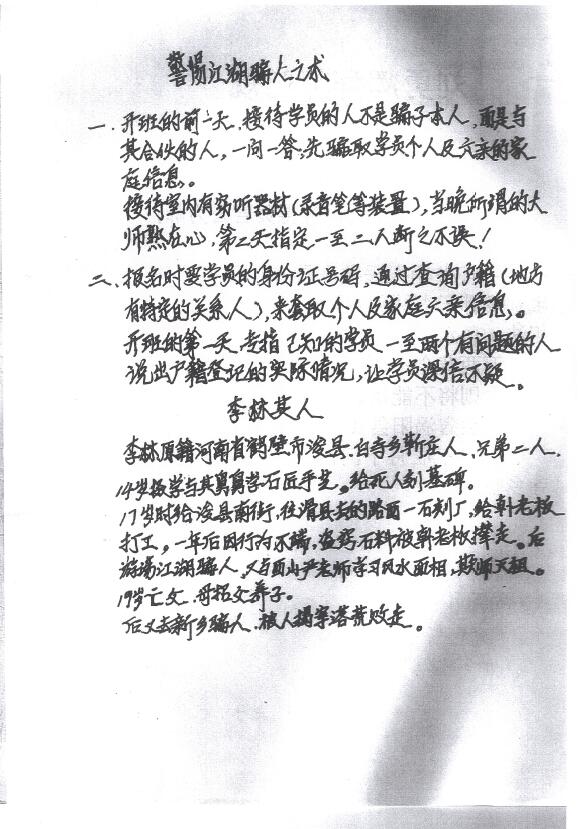 警惕江湖骗人之术
一、开班的前一天，接待学员的人不是骗子本人，而是与
其合伙的人，一问一答，先骗取学员个人及六亲的家
庭信息。
接待室内有窃听器材(录音笔等装置)，当晚所谓的大
师熟在心，第二天指定一至二人断之不误！
二、报名时要学员的身份证号码，通过查询户籍(地方
有特定的关系人)，来套取个人及家庭六亲信息。
开班的第一天，专指已知的学员一至两个有问题的人
说出户籍登记的实际情况，让学员深信不疑。
李林其人
李林原籍河南省鹤壁市浚县、白寺乡靳庄人、兄弟二人，
14岁拨学与其舅舅学石匠手艺。给死人刻墓碑。
17岁时给浚县南街，往滑县去的路西一石刻厂，给韩老板
打工。一年后因行为不端，盗窃石料被韩老板撵走。后
游荡江湖骗人，又与西山严老师学习风水面相，欺师灭祖。
19岁亡父、母招父养子。
后又去新乡骗人、被人揭穿落荒败走。